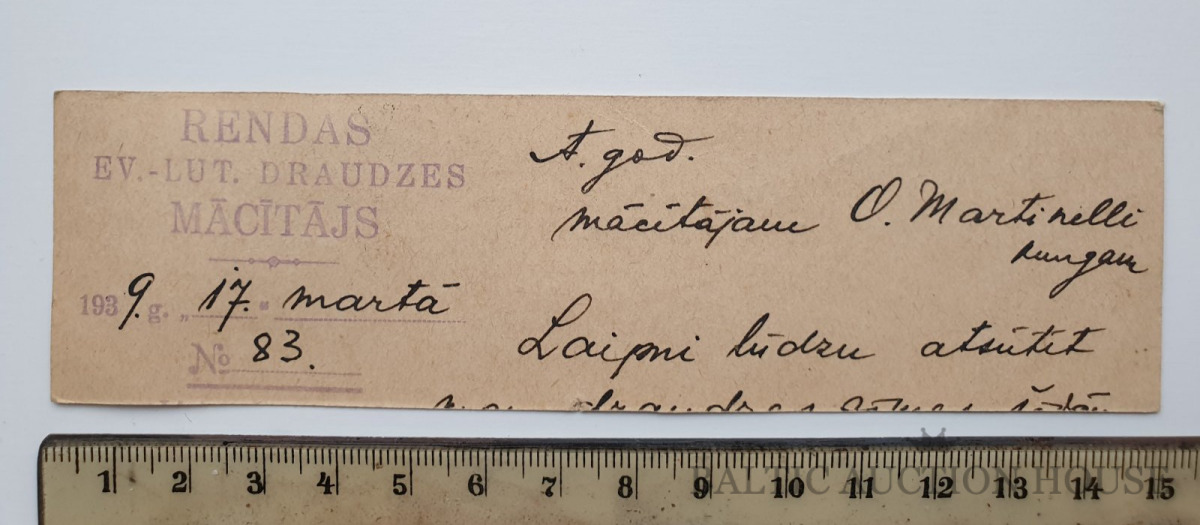 RENDAS
EV.-LUT. DRAUDZES
MĀCĪTĀJS
1939. g. „17." martā
№ 83.
A. god.
mācītājam O. Martinelli
kungam
Laipni lūdzu atsūtīt
draudzes
1 2 3 4 5 6 7 8 9 10 11 12 13 14 15
BALTIC AUCTION HOUSE